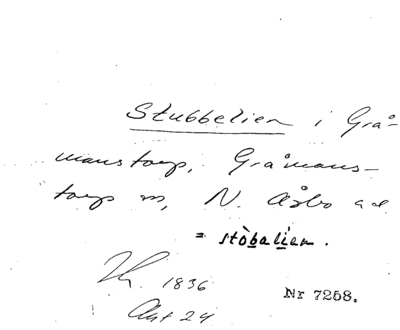 Stubbelien i Grå-
manstorp, Gråmans-
torp sn, N. Åsbo hd
= stòbalien.
Lh. 1836
Akt 24
Nr 7258.